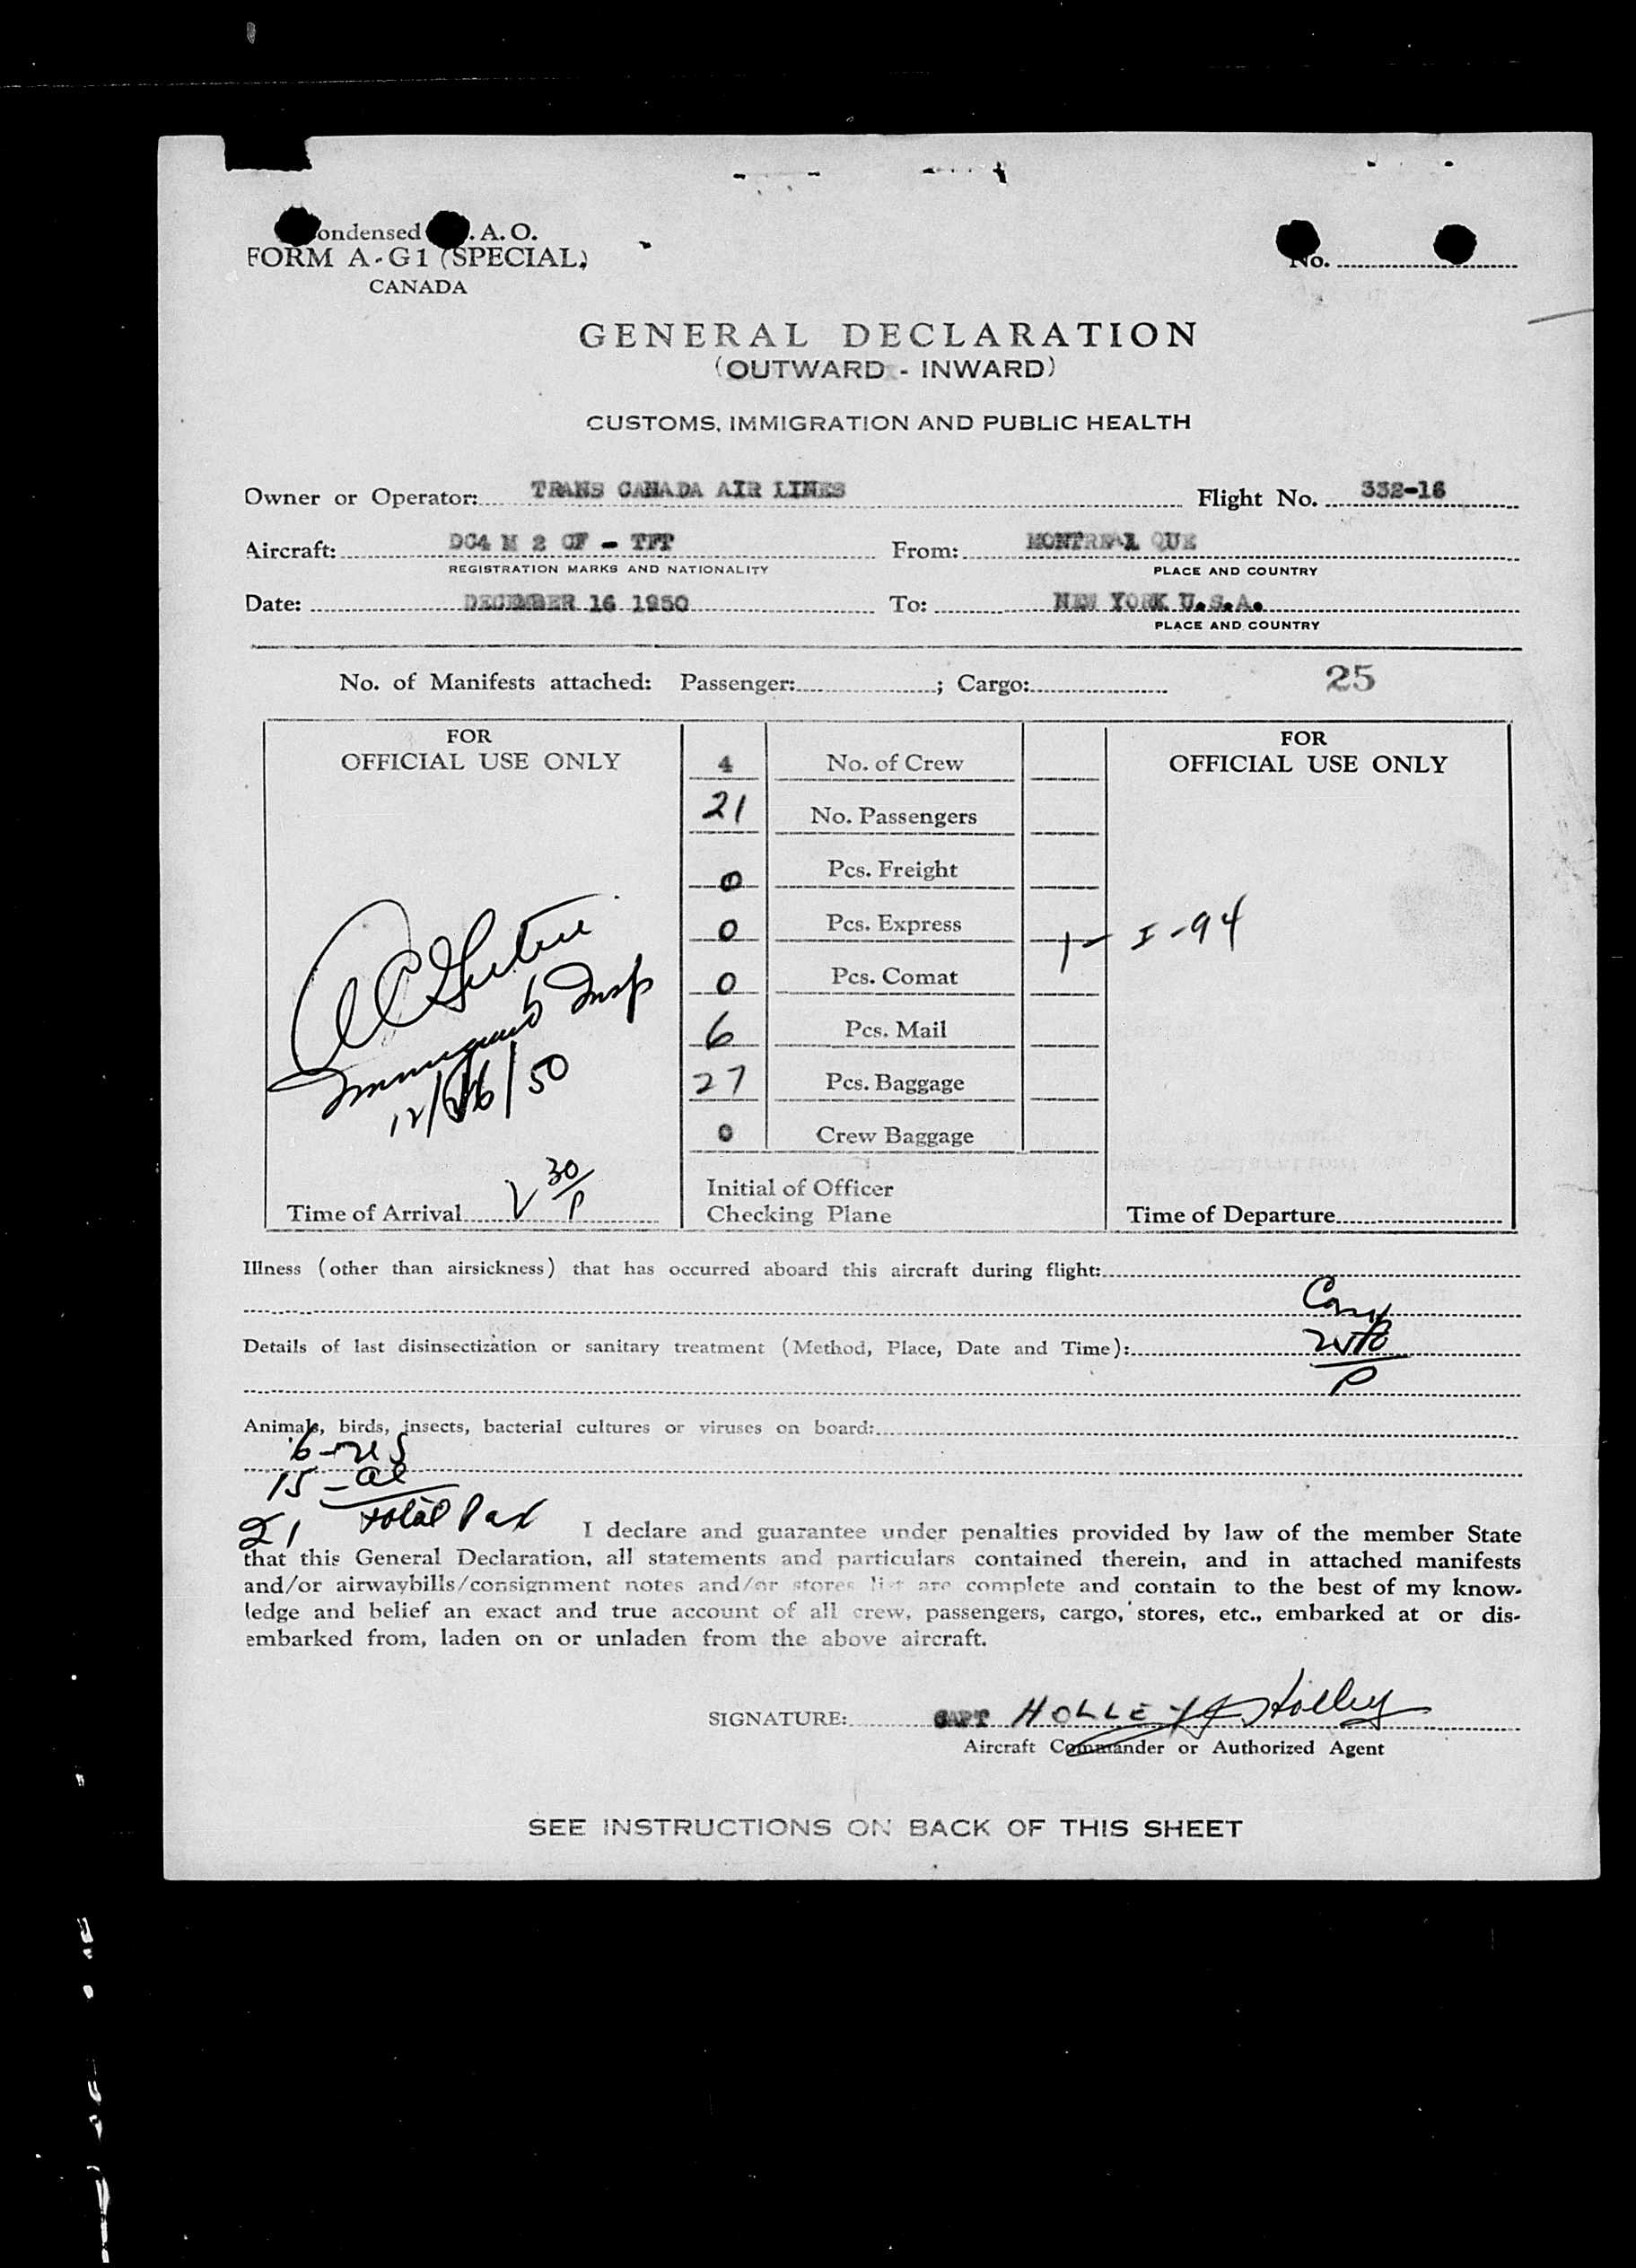 ondensed . A. O.
FORM A-G1 (SPECIAL)
CANADA
No.
GENERAL DECLARATION
(OUTWARD - INWARD)
CUSTOMS, IMMIGRATION AND PUBLIC HEALTH
Owner or Operator: TRANS CANADA AIR LINES Flight No. 332-16
Aircraft: DC4 M 2 CF - TFT From: MONTREAL QUE
REGISTRATION MARKS AND NATIONALITY PLACE AND COUNTRY
Date: DECEMBER 16 1950 To: NEW YORK U.S.A.
PLACE AND COUNTRY
No. of Manifests attached: Passenger: ; Cargo: 25
FOR OFFICIAL USE ONLY
4 No. of Crew
21 No. Passengers
0 Pcs. Freight
0 Pcs. Express
0 Pcs. Comat
6 Pcs. Mail
27 Pcs. Baggage
0 Crew Baggage
Insp
12/16/50
Time of Arrival 2 30/P
Initial of Officer
Checking Plane
FOR
OFFICIAL USE ONLY
1 - I-94
Time of Departure
Illness (other than airsickness) that has occurred aboard this aircraft during flight:
Details of last disinsectization or sanitary treatment (Method, Place, Date and Time):
Animals, birds, insects, bacterial cultures or viruses on board:
6 - US
15 - al
21 total Pax
I declare and guarantee under penalties provided by law of the member State
that this General Declaration, all statements and particulars contained therein, and in attached manifests
and/or airwaybills/consignment notes and/or stores list are complete and contain to the best of my know-
ledge and belief an exact and true account of all crew, passengers, cargo, stores, etc., embarked at or dis-
embarked from, laden on or unladen from the above aircraft.
SIGNATURE: CAPT HOLLEY Holley
Aircraft Commander or Authorized Agent
SEE INSTRUCTIONS ON BACK OF THIS SHEET